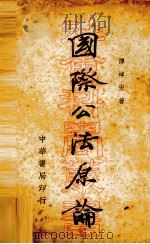 譚焯宏著
國際公法原論
中華書局印行